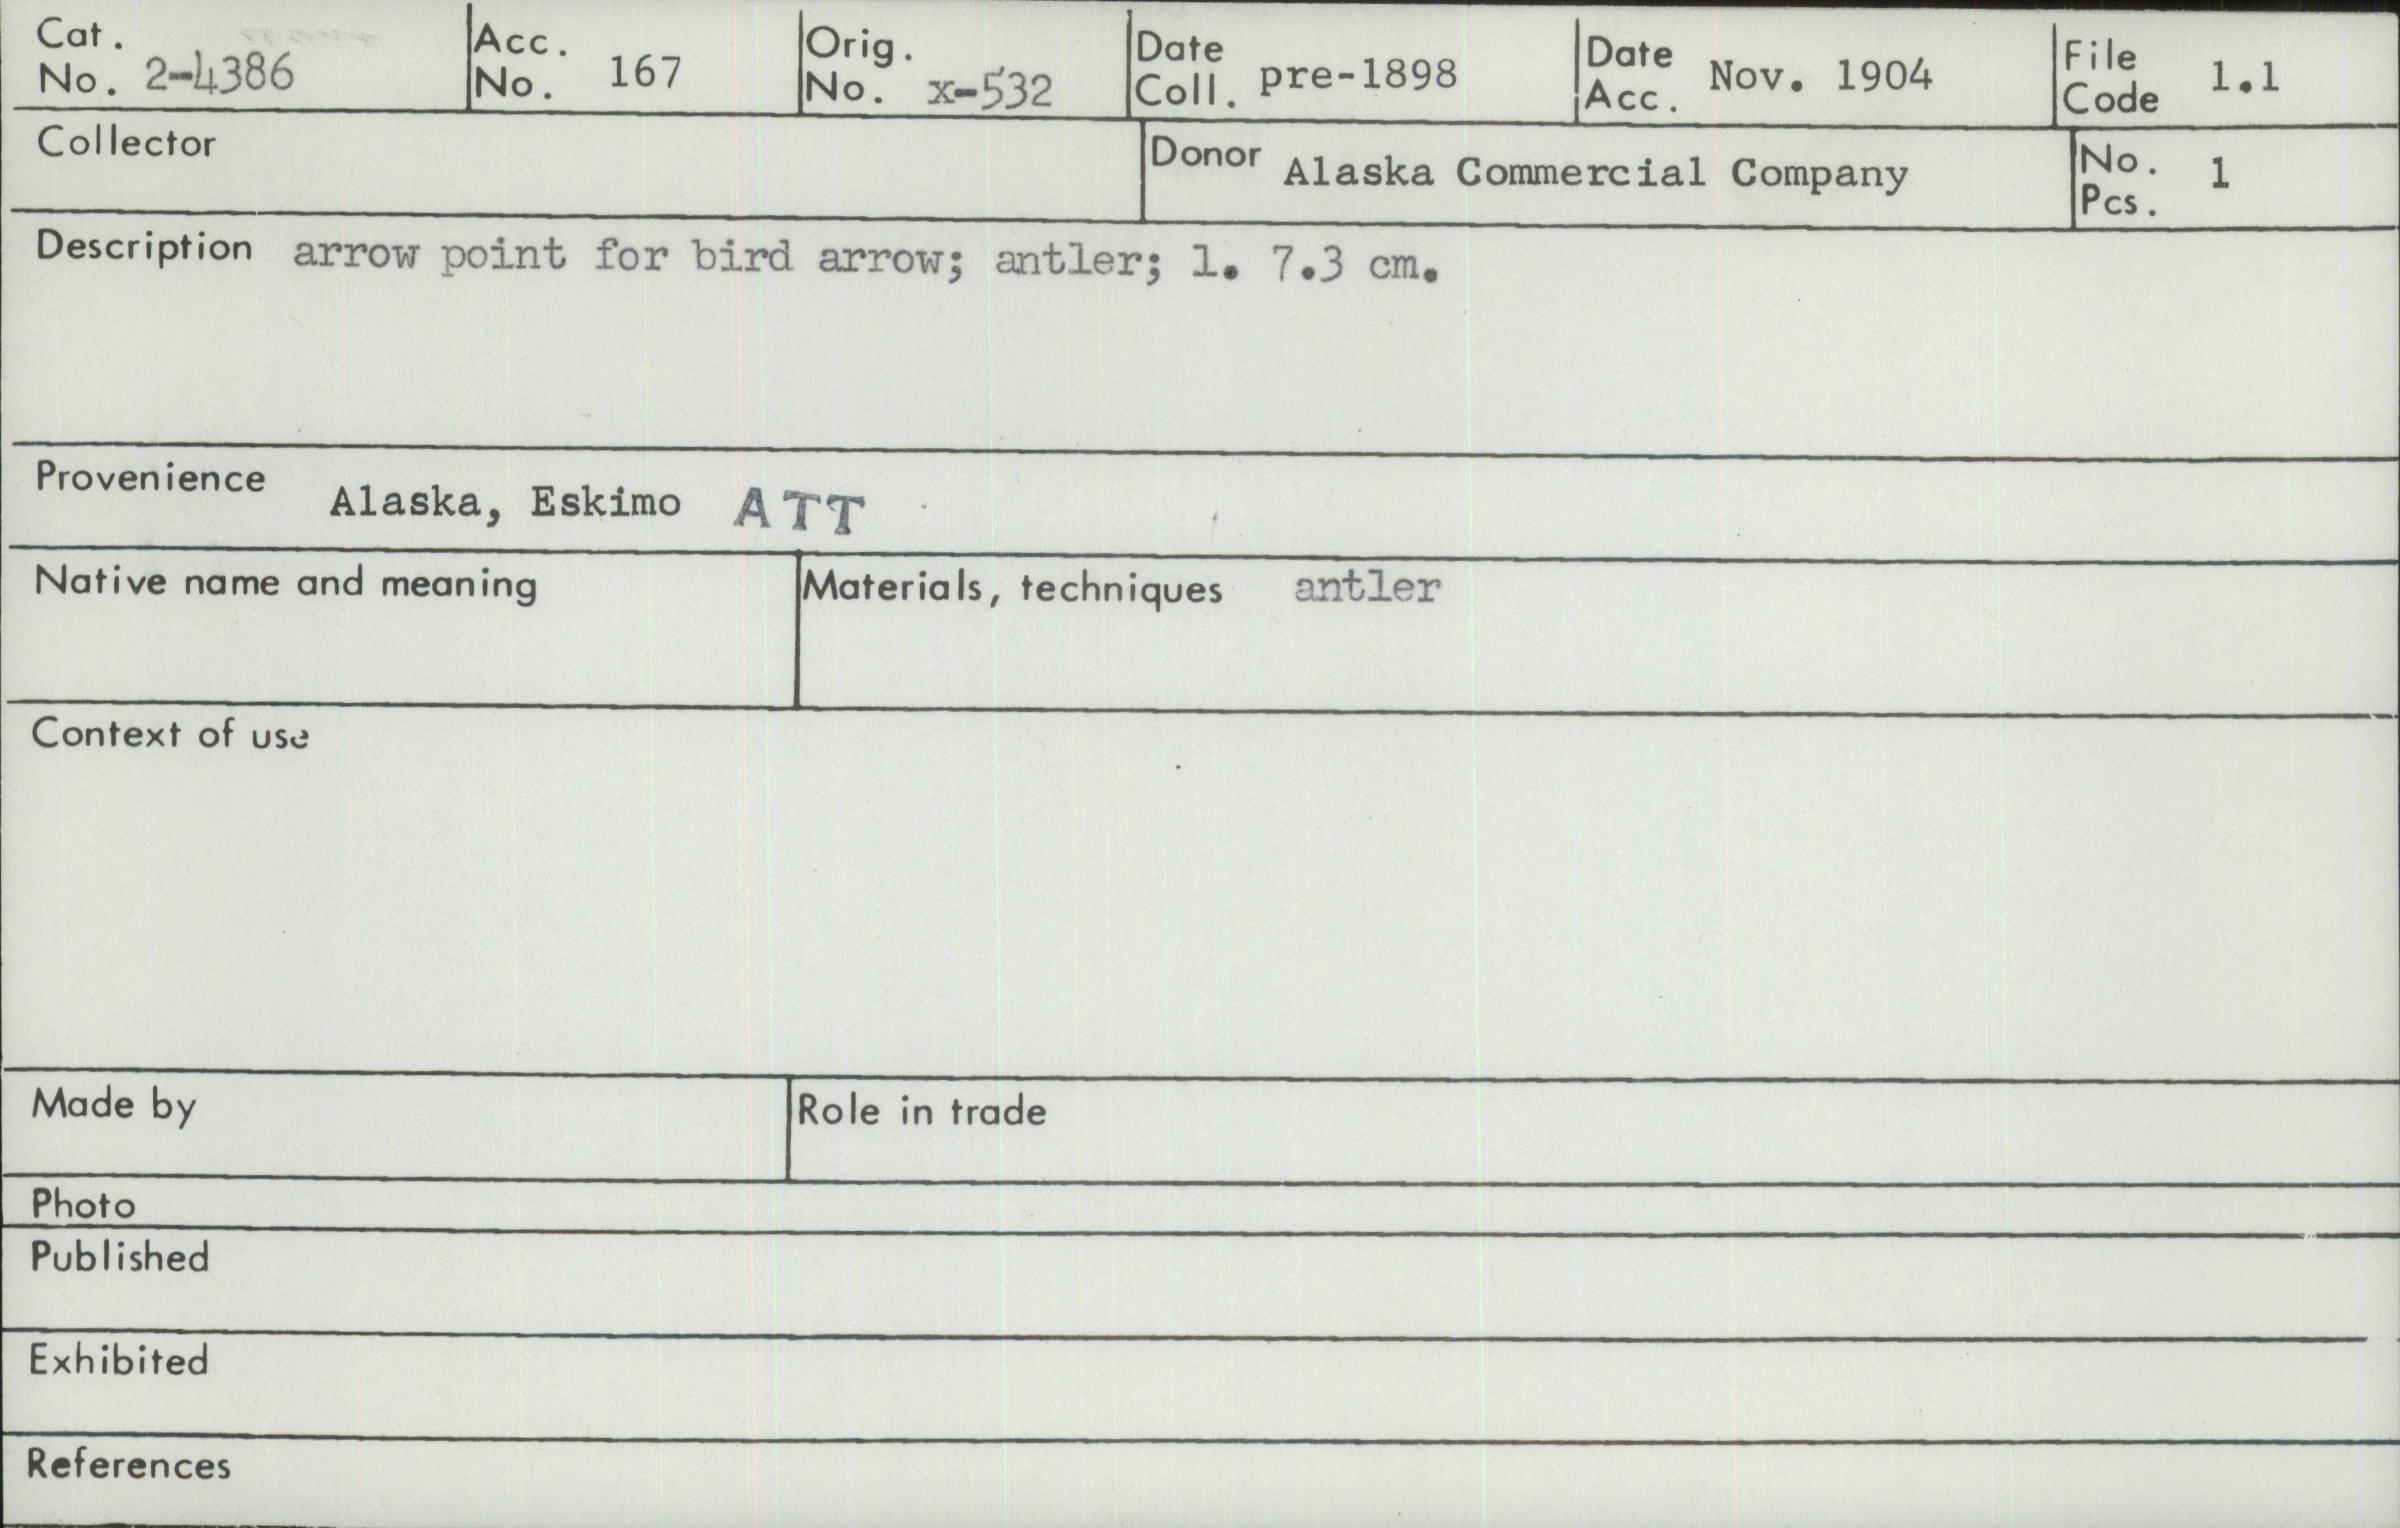 Cat. No. 2-4386 Acc. No. 167 Orig. No. x-532 Date Coll. pre-1898 Date Acc. Nov. 1904 File Code 1.1
Collector Donor Alaska Commercial Company No. Pcs. 1
Description arrow point for bird arrow; antler; l. 7.3 cm.
Provenience Alaska, Eskimo ATT
Native name and meaning Materials, techniques antler
Context of use
Made by Role in trade
Photo
Published
Exhibited
References